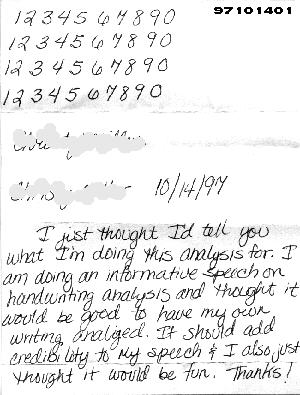 97101401
1234567890
1234567890
1234567890
1234567890
10/14/97
I just thought I'd tell you
what I'm doing this analysis for. I
am doing an informative speech on
handwriting analysis and thought it
would be good to have my own
writing analized. It should add
credibility to my speech & I also just
thought it would be fun. Thanks!